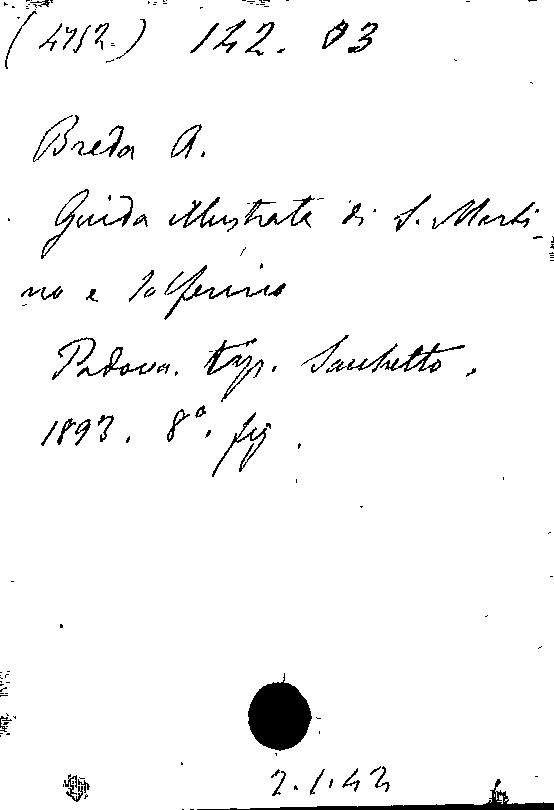 (4752.) 142. D3
Breda A.
Guida illustrata di S. Marti-
no e Solferino
Padova. typ. Sacchetto.
1893. 8º. fig.
2.1.42